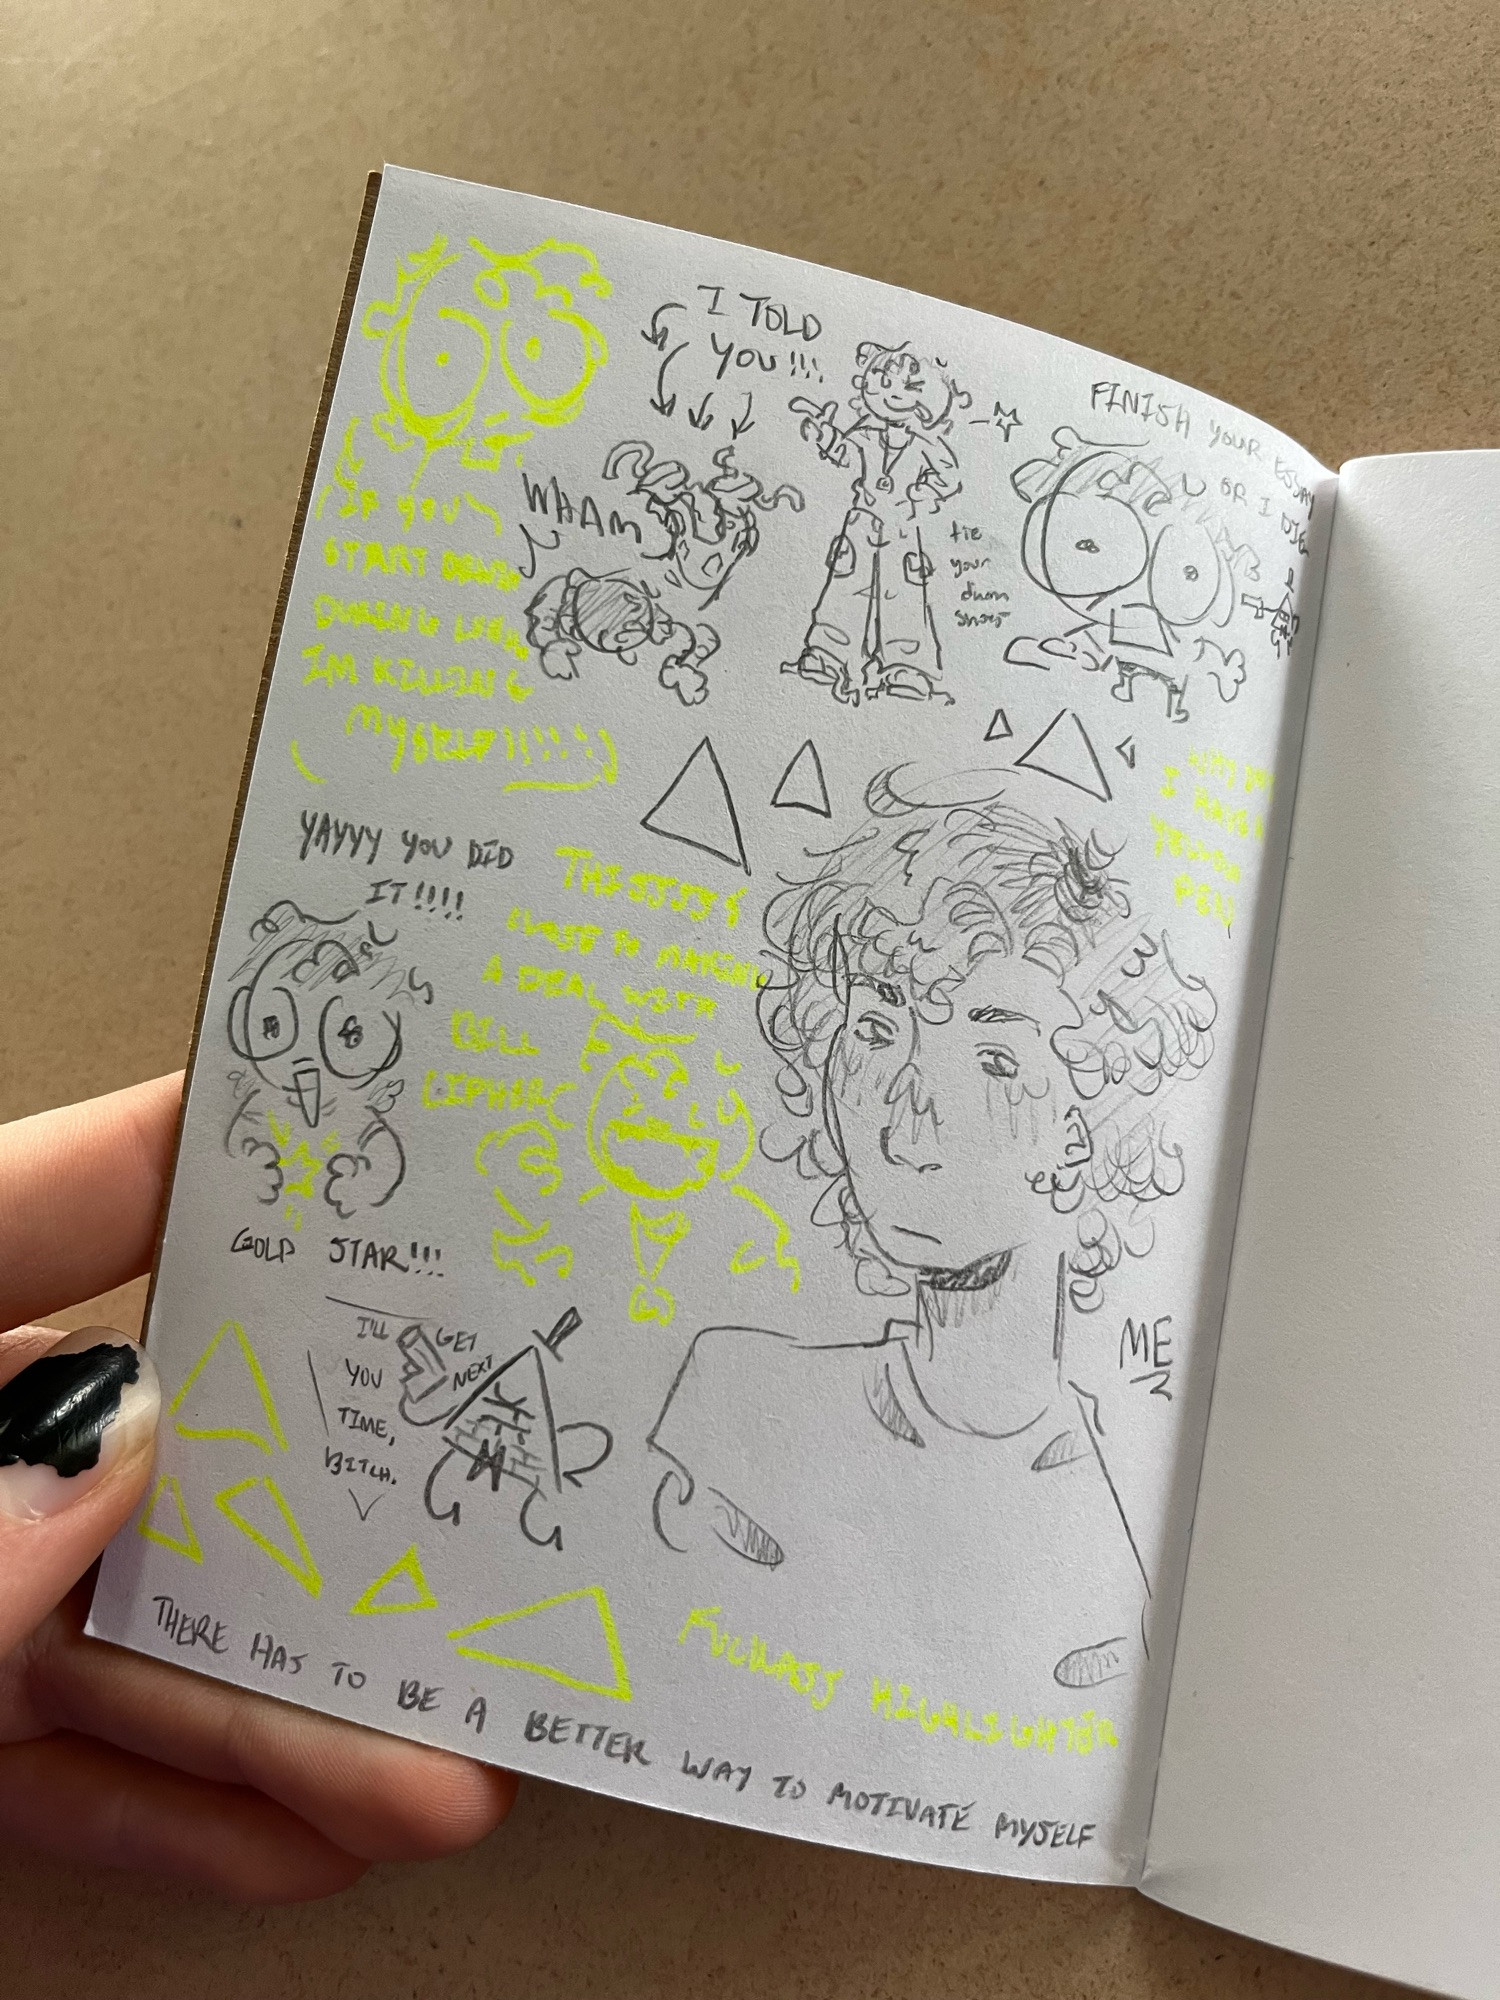 I TOLD
YOU!!!
WHAM
tie
your
damn
shoes
FINISH YOUR ESSAY
OR I DIE
(IF YOU
START
DURING
IM KILLING
MYSELF)!!!!!
I HAVE
YAYYY YOU DID
IT!!!!
GOLD STAR!!!
THISSSSS
CLOSE TO MAKING
A DEAL WITH
BILL
CIPHER
ME
I'LL GET
YOU NEXT
TIME,
BITCH.
FUCKASS HIGHLIGHTER
THERE HAS TO BE A BETTER WAY TO MOTIVATE MYSELF